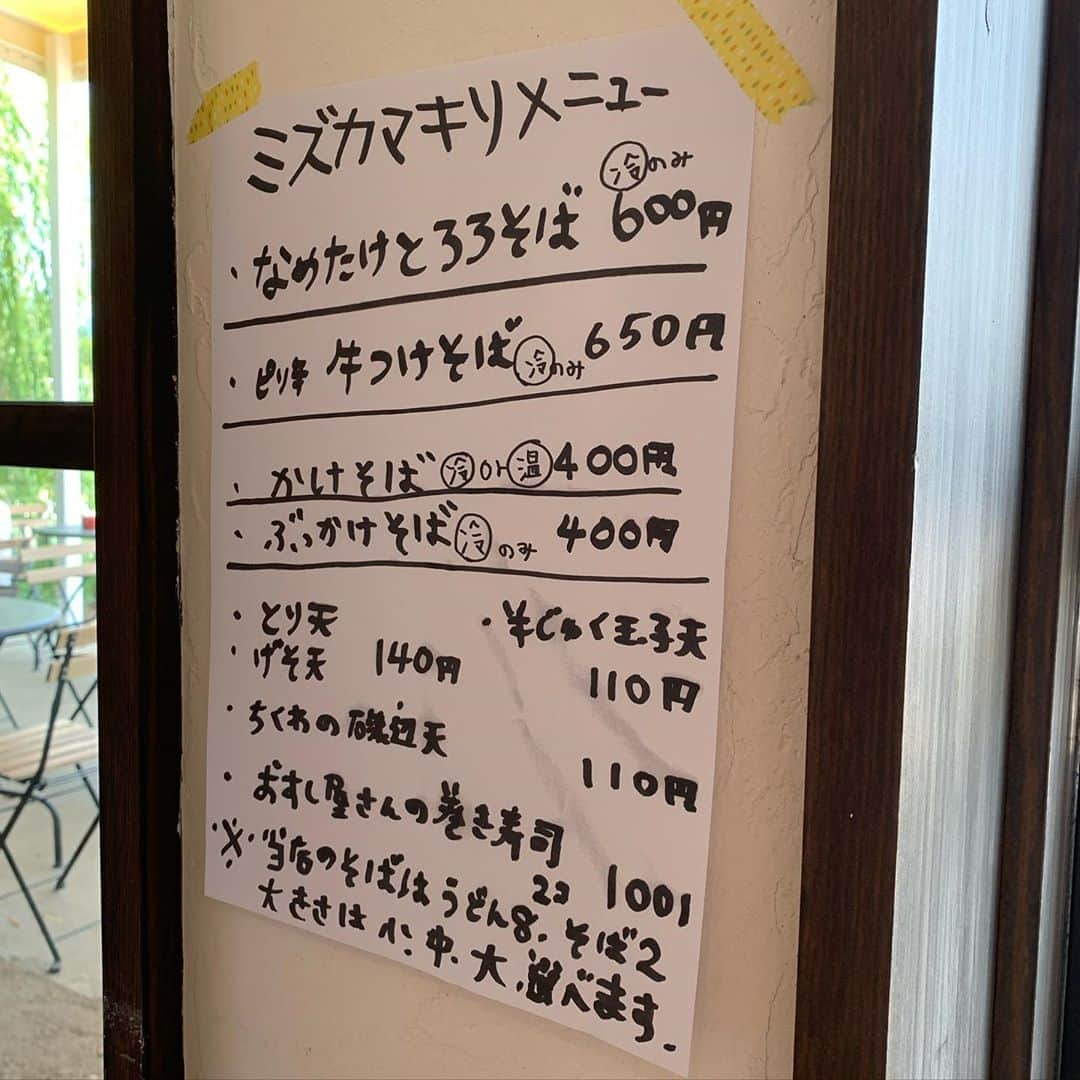 ミズカマキリメニュー
・なめたけとろろそば 冷のみ 600円
・ピリ辛 牛つけそば 冷のみ 650円
・かけそば 冷or温 400円
・ぶっかけそば 冷のみ 400円
・とり天 ・半じゅく玉子天
・げそ天 140円 110円
・ちくわの磯辺天 110円
・おすし屋さんの巻き寿司
2コ 100
※当店のそばはうどん8、そば2
大きさは小、中、大、選べます。